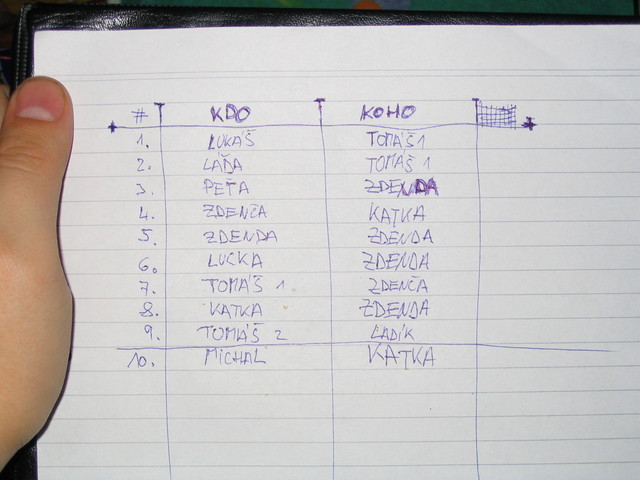 # KDO KOHO
1. LUKÁŠ TOMÁŠ 1
2. LAĎA TOMÁŠ 1
3. PEŤA ZDENDA
4. ZDENČA KATKA
5. ZDENDA ZDENDA
6. LUCKA ZDENDA
7. TOMÁŠ 1 ZDENČA
8. KATKA ZDENDA
9. TOMÁŠ 2 LADÍK
10. MICHAL KATKA